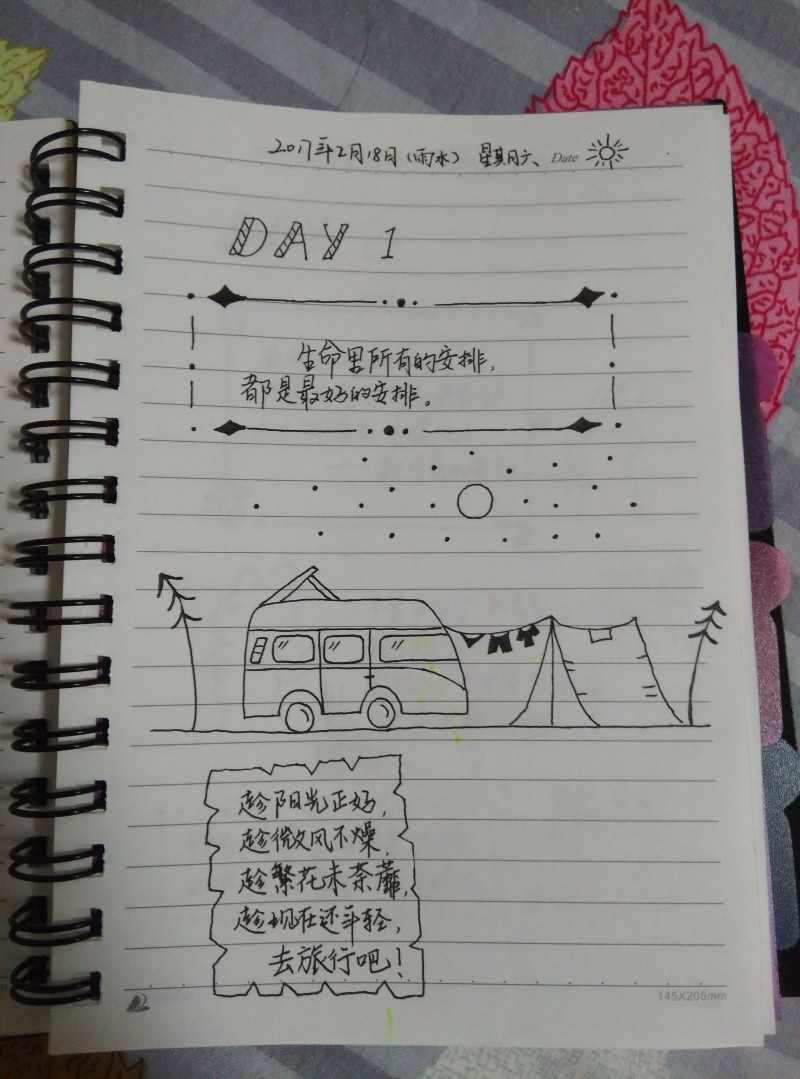 2017年2月18日(雨水) 星期六 Date
DAY 1
生命里所有的安排,
都是最好的安排。
趁阳光正好,
趁微风不燥,
趁繁花未荼蘼,
趁现在还年轻,
去旅行吧!
145X205mm